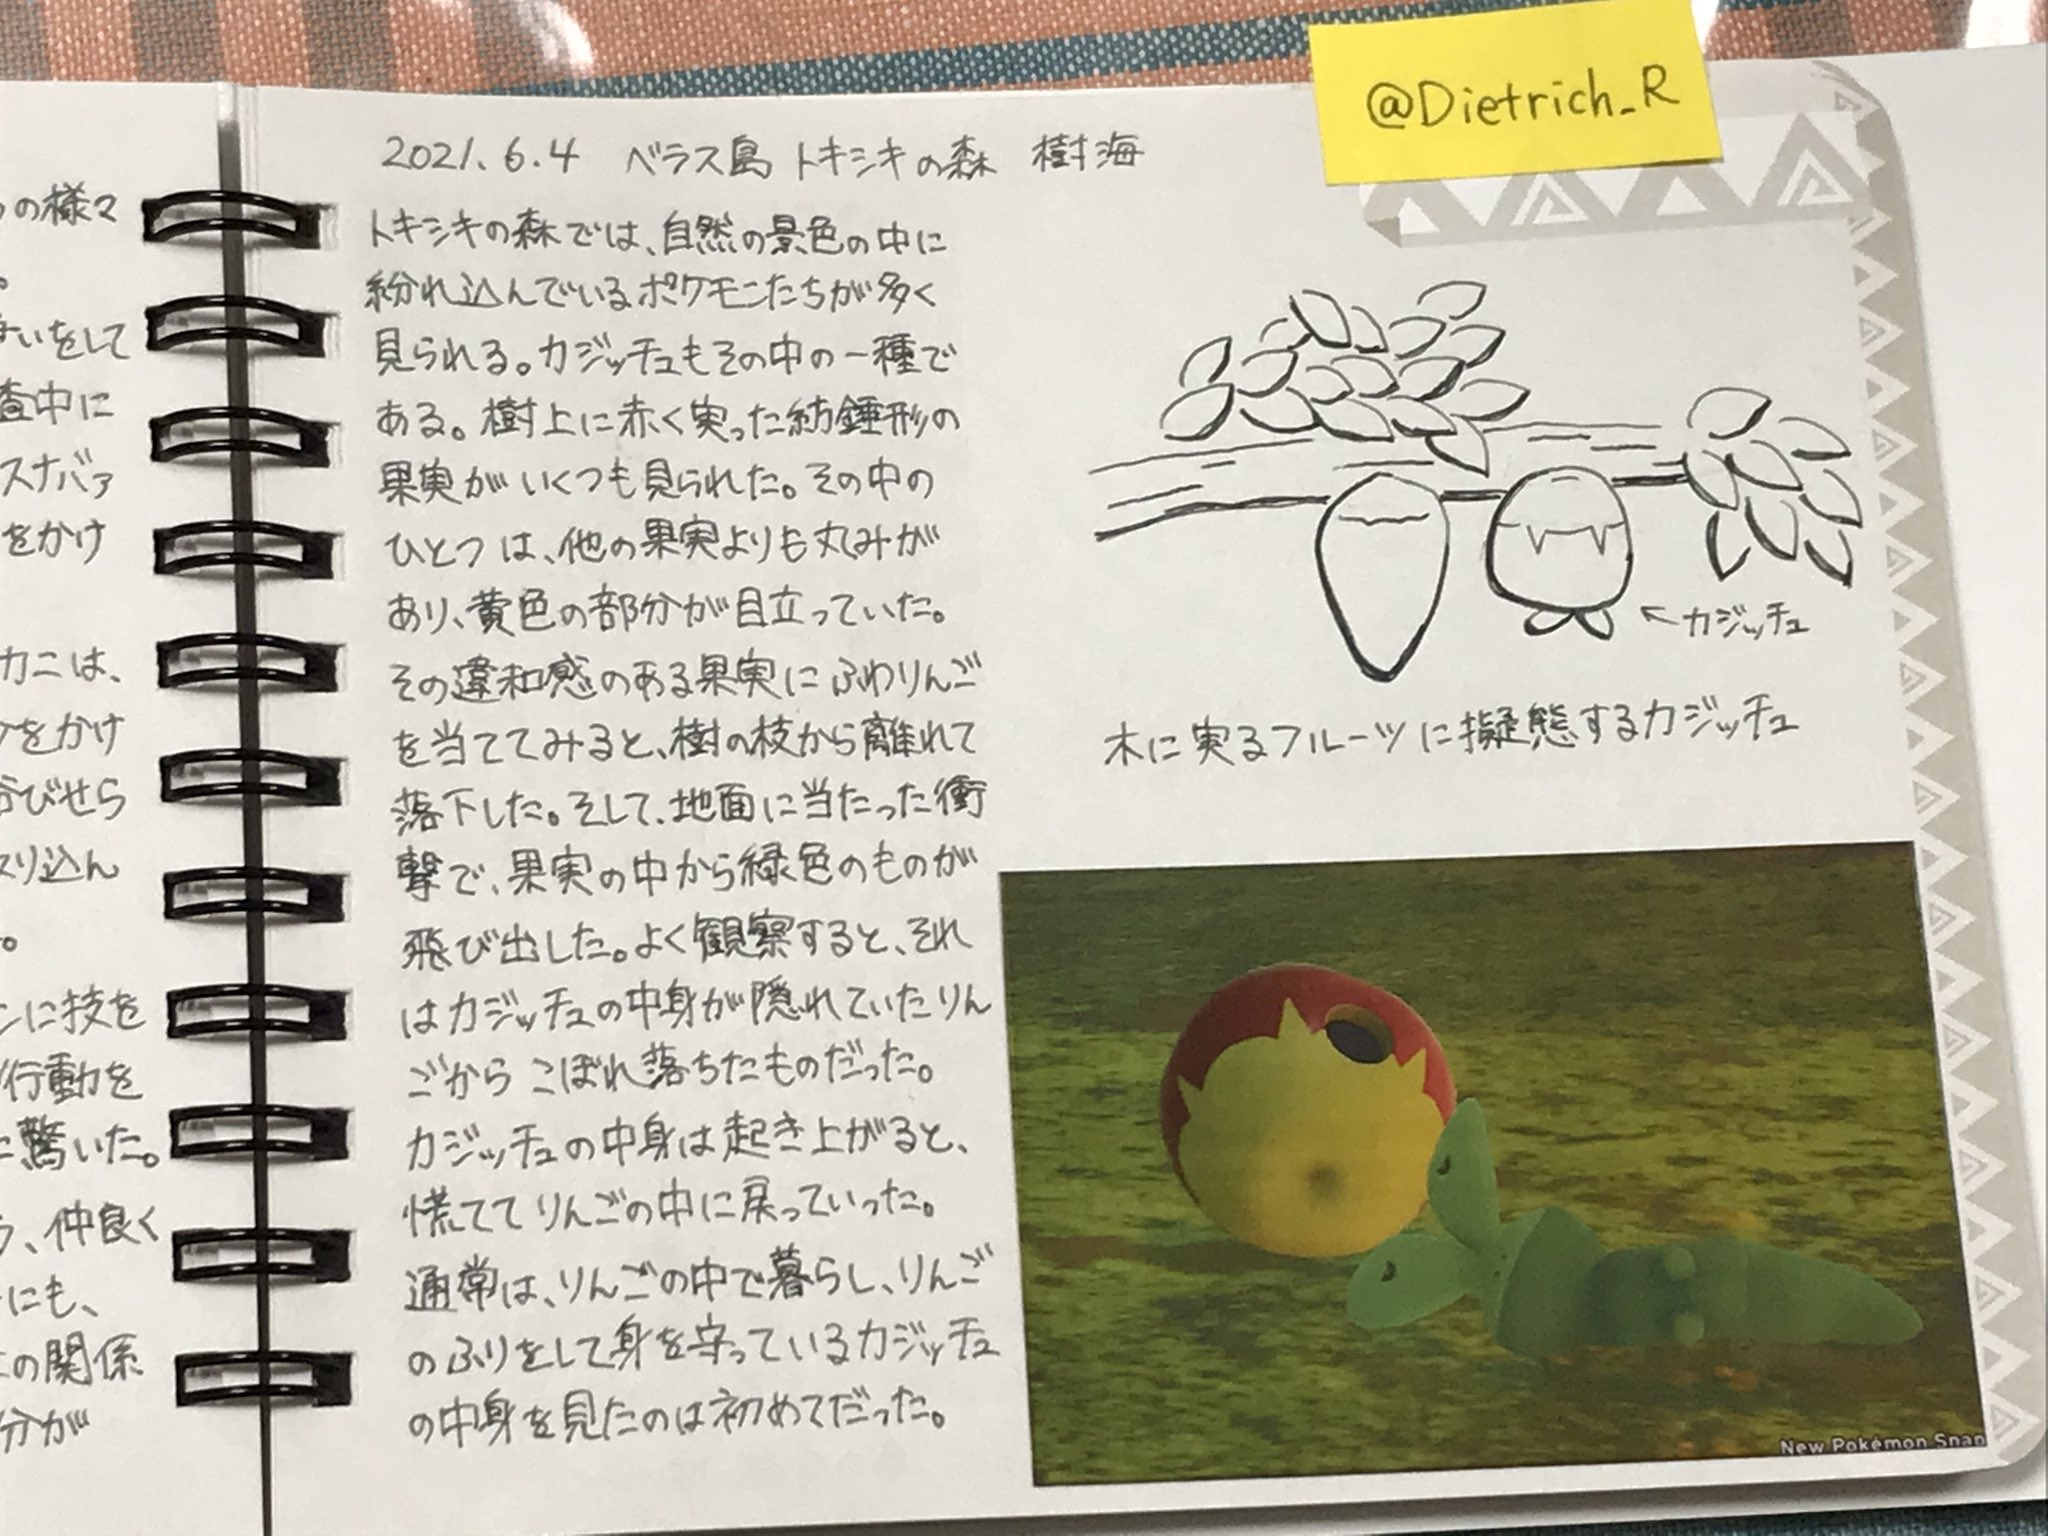 の様々
。
いをして
査中に
スナバァ
をかけ
カニは、
をかけ
びせら
スリ込ん
。
ンに技を
行動を
に驚いた。
う、仲良く
にも、
の関係
分が
2021.6.4 ベラス島 トキシキの森 樹海
トキシキの森では、自然の景色の中に
紛れ込んでいるポケモンたちが多く
見られる。カジッチュもその中の一種で
ある。樹上に赤く実った紡錘形の
果実がいくつも見られた。その中の
ひとつは、他の果実よりも丸みが
あり、黄色の部分が目立っていた。
その違和感のある果実にふわりんご
を当ててみると、樹の枝から離れて
落下した。そして、地面に当たった衝
撃で、果実の中から緑色のものが
飛び出した。よく観察すると、それ
はカジッチュの中身が隠れていたりん
ごからこぼれ落ちたものだった。
カジッチュの中身は起き上がると、
慌ててりんごの中に戻っていった。
通常は、りんごの中で暮らし、りんご
のふりをして身を守っているカジッチュ
の中身を見たのは初めてだった。
@Dietrich_R
←カジッチュ
木に実るフルーツに擬態するカジッチュ
New Pokémon Snap